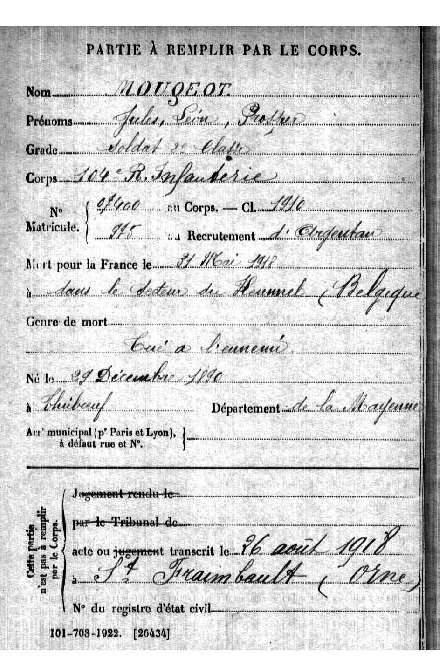 PARTIE À REMPLIR PAR LE CORPS.
Nom MOUGEOT.
Prénoms Jules, Léon, Prosper
Grade Soldat 2e Classe
Corps 104e R. Infanterie
N° Matricule. { au Corps. — Cl. 1910
au Recrutement d'Argentan
Mort pour la France le 31 Mai 1918
à dans le secteur du Kemmel (Belgique
Genre de mort
Tué à l'ennemi
Né le 29 Décembre 1890
à Thubœuf Département de la Mayenne
Arrt municipal (pr Paris et Lyon), à défaut rue et N°. }
Cette partie n'est pas à remplir par le Corps.
Jugement rendu le
par le Tribunal de
acte ou jugement transcrit le 26 août 1918
à St Fraimbault (Orne)
N° du registre d'état civil
101-708-1922. [26434]